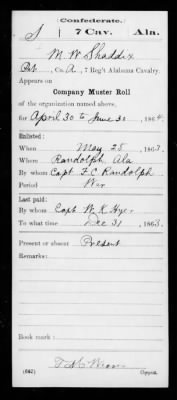 Confederate.
S 7 Cav. Ala.
M W Shaddix
Pvt, Co. A, 7 Reg't Alabama Cavalry.
Appears on
Company Muster Roll
of the organization named above,
for April 30 to June 30, 1864.
Enlisted:
When May 25, 1863.
Where Randolph Ala
By whom Capt F. C. Randolph
Period War
Last paid:
By whom Capt W. K. Hyer
To what time Dec 31, 1863.
Present or absent Present
Remarks:
Book mark:
(642) Copyist.